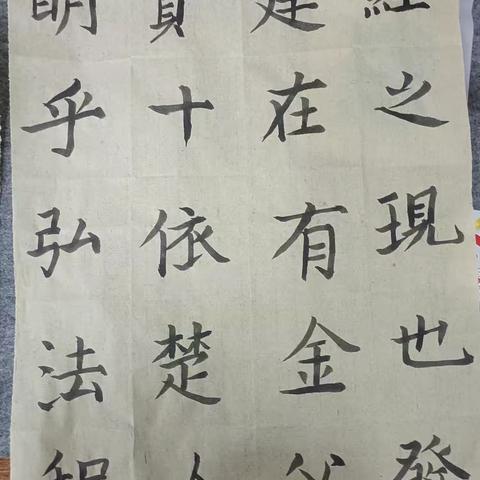 之現也發
建在有金
十依楚
明乎弘法